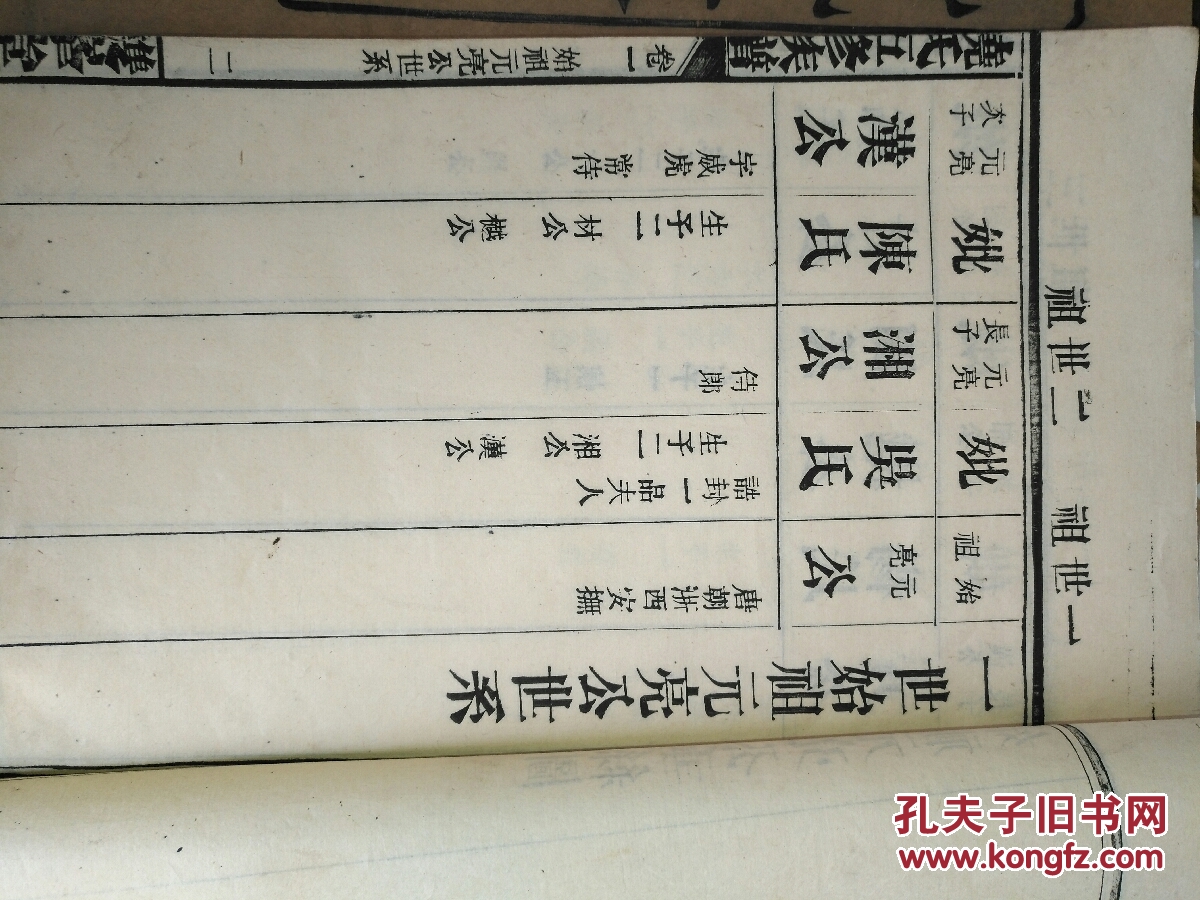 一世祖
二世祖
一世始祖元亮公世系
始祖
元亮公
唐朝浙西安撫
妣
吳氏
誥封一品夫人
生子二 湘公 漢公
元亮
長子
湘公
侍郎
妣
陳氏
生子二 材公 樾公
元亮
次子
漢公
字威虎 常侍
氏五修族譜
卷一
始祖元亮公世系
二
孔夫子旧书网
www.kongfz.com